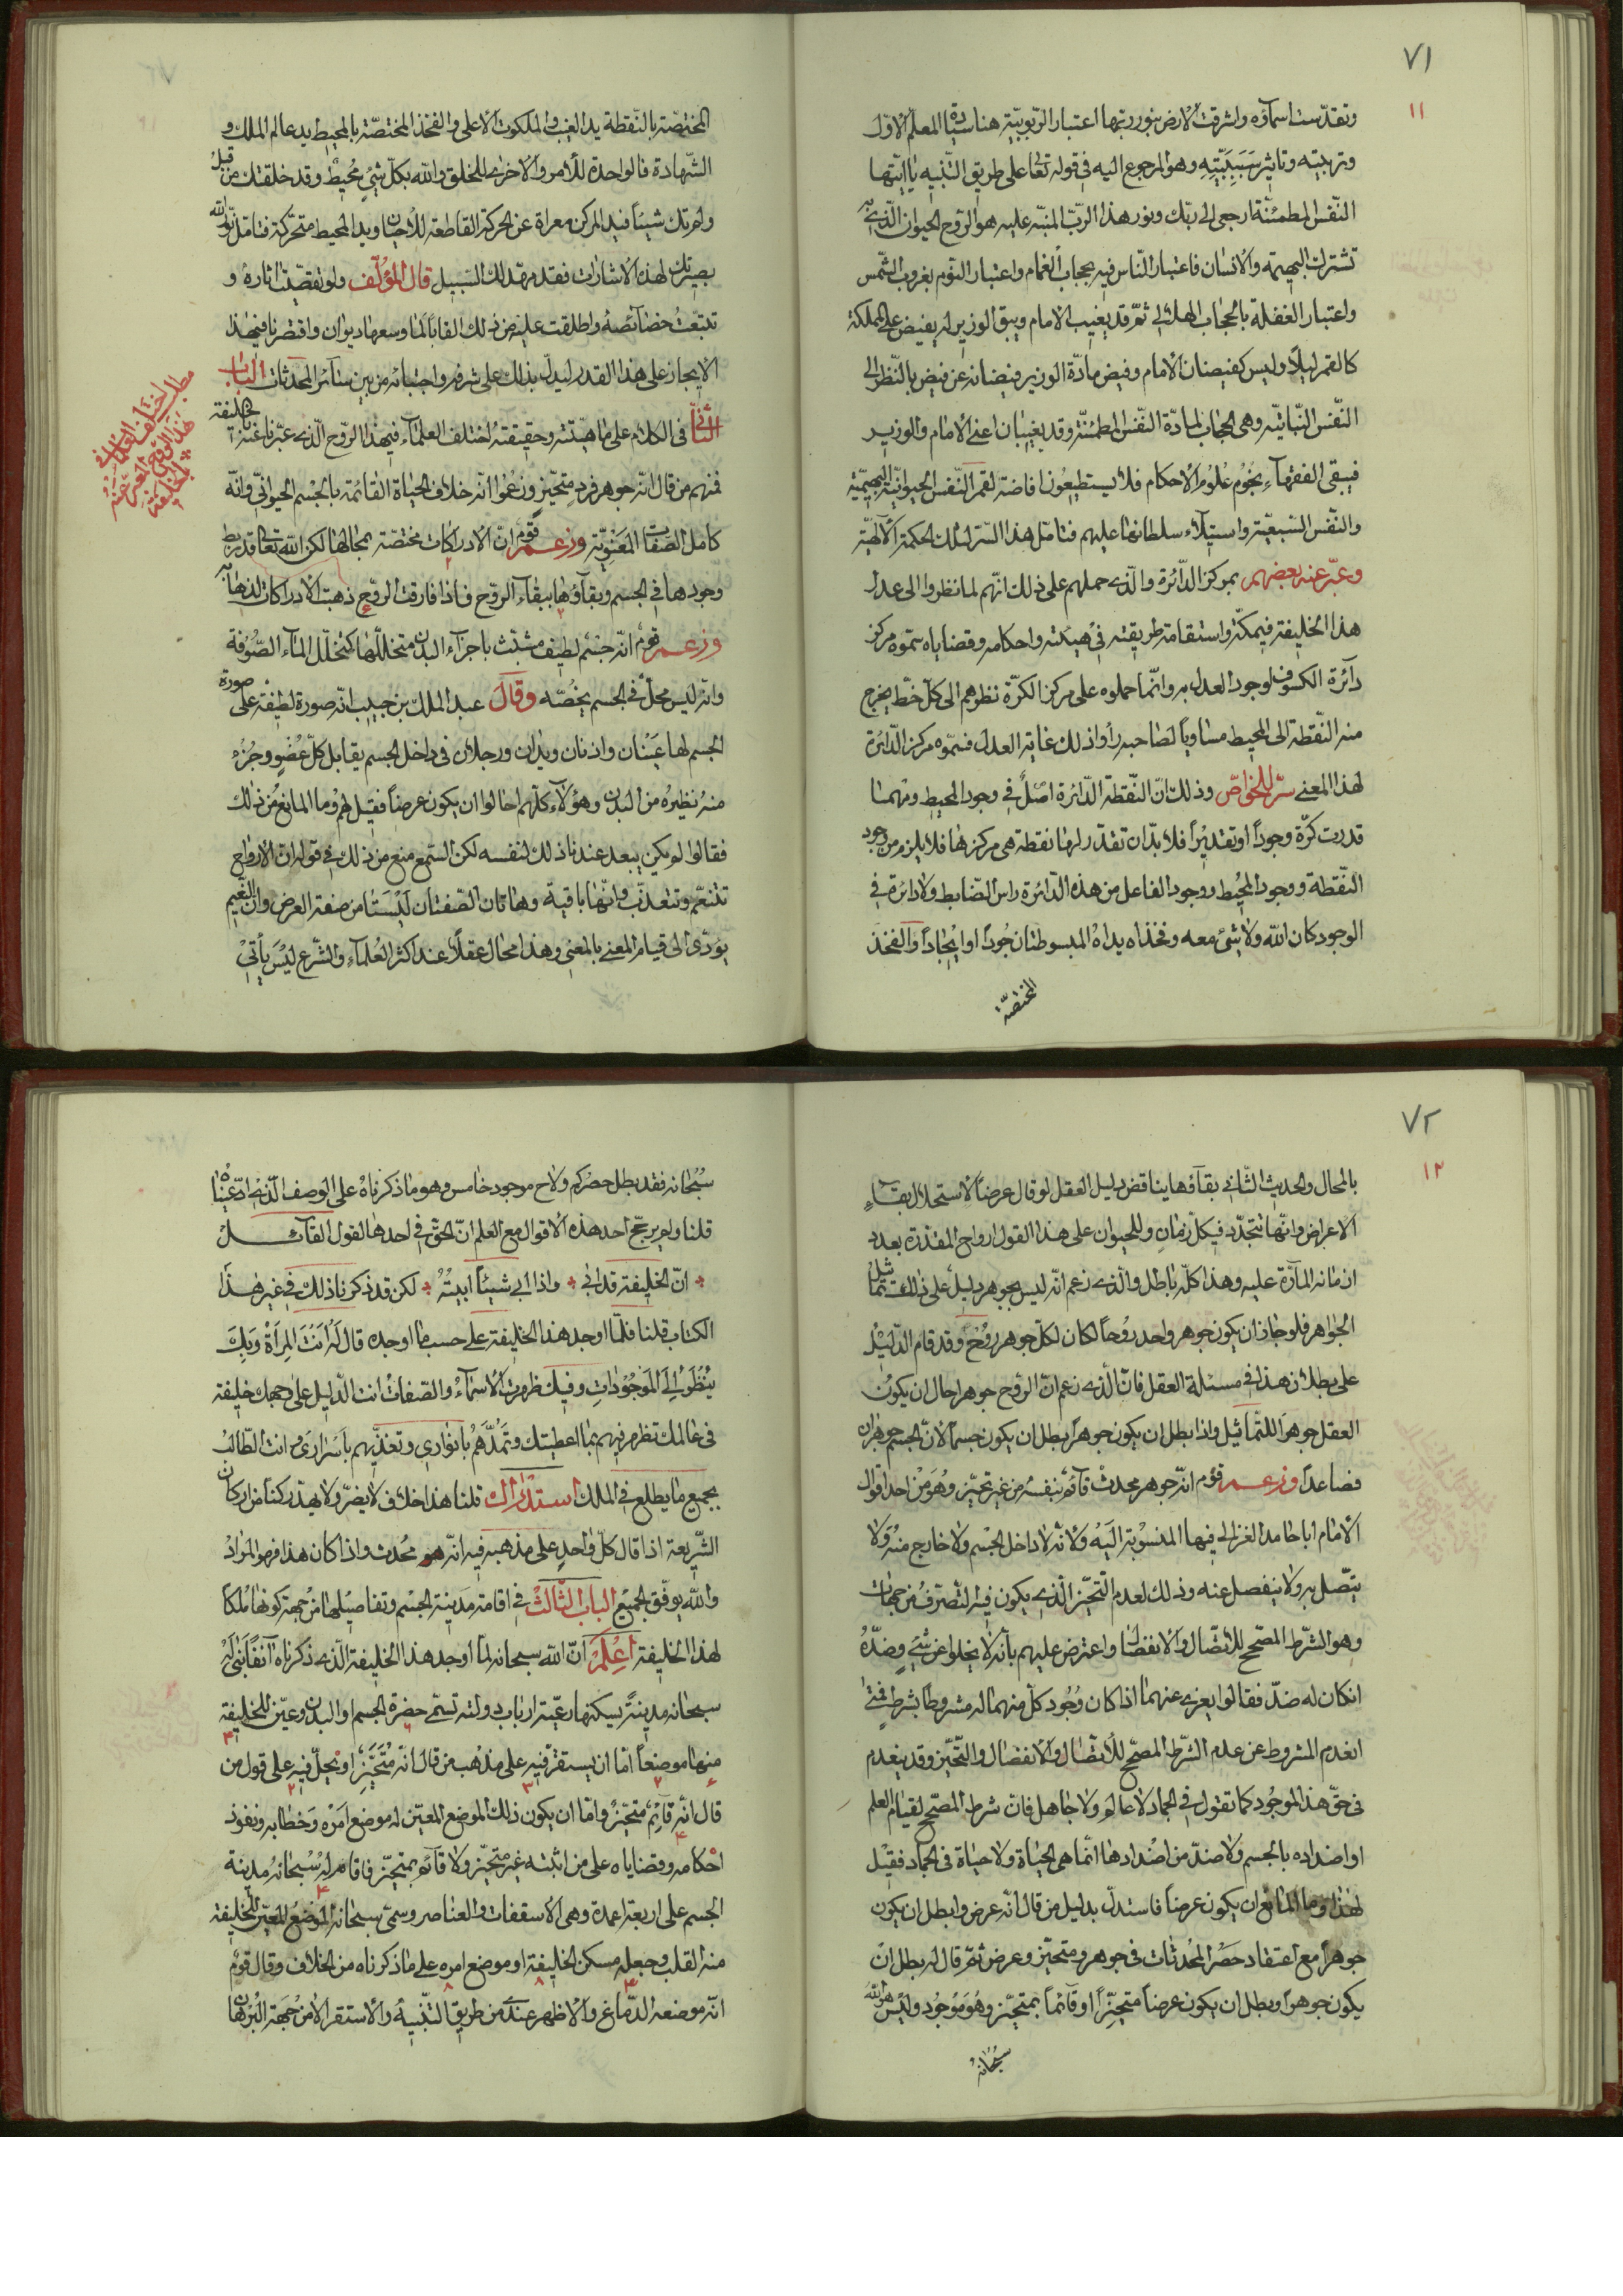 ٧١
١١
وتقدّست اسمآؤه واشرقت الارض بنور ربّها اعتبار الربوبيّة هنا سيادة المعلّم الاوّل
وتربيته وتاثير سببيّته وهو المرجوع اليه في قوله تعا على طريق التّنبيه يا ايّتها
النّفس المطمئنّة ارجعى الى ربّك ونور هذا الربّ المنبّه عليه هو الرّوح الحيوان الّذى به
تشترك البهيمة والانسان فاعتبار النّاس فيه بحجاب الغمام واعتبار القوم بغروب الشّمس
واعتبار الغفلة بالحجاب الهلالى ثمّ قد يغيب الامام ويبقى الوزير له يفيض على المملكة
كالقمر ليلاً وليس كفيضان الامام وفيض مادّة الوزير فيضانه عن فيض بالنّظر الى
النّفس النّباتيّة وهى الحجاب لمادّة النّفس المطمئنّة وقد يغيبان اعنى الامام والوزير
فيبقى الفقهآء نجوم علوم الاحكام فلا يستطيعون افاضة لقمر النّفس الحيوانيّة البهيميّة
والنّفس السّبعيّة واستيلآء سلطانها عليهم فتامّل هذا السّر لتلك الحكمة الآلهيّة
وعبّر عنه بعضهم بمركز الدّائرة والّذى حملهم على ذلك انّهم لما نظروا الى عدل
هذا الخليفة في ملكه واستقامة طريقته في هيئته واحكامه وقضاياه سمّوه مركز
دآئرة الكون لوجود العدل به وانّما حملوه على مركز الكرّة نظرهم الى كلّ خطّ يخرج
منه النّقطة الى المحيط مساوياً لصاحبه رأوا ذلك غاية العدل فسمّوه مركز الدّائرة
لهذا المعنى سرّ للخواصّ وذلك انّ النّقطة الدّائرة اصل في وجود المحيط ومهما
قدرت كرّة وجوداً او تقديراً فلا بدّ ان تقدّر لها نقطة هى مركزها فلا يلزم من وجود
النّقطة ووجود المحيط ووجود الفاعل من هذه الدّائرة راس الضّابط ولا دائرة في
الوجود كان الله ولا شئ معه وفخذاه يداه المبسوطتان جوداً او ايجاداً والفخذ
المختصّة
المختصّة بالنّقطة يد الغيب والملكوت الاعلى والفخذ المختصّة بالمحيط يد عالم الملك و
الشّهادة فالواحدة للأمر والاخرى للخلق والله بكلّ شئ محيط وقد خلقتك من قبل
ولم تك شيئاً فيد المركز معراة عن الحركة القاطعة للأحيان ويد المحيط متحرّكة فتامّل نوّر الله
بصيرتك لهذه الاشارات فقد مهّد لك السّبيل قال المؤلّف ولو تقصّيت اثاره و
تتبّعت خصآئصه واطلقت عليه من ذلك القاباً لما وسعها ديوان واقتصرنا في هذا
الايجاز على هذا القدر ليدلّ بذلك على شرفه واجتبائه من بين سآئر المحدثات الباب
الثّانى في الكلام على ماهيّته وحقيقته اختلف العلمآء في هذا الرّوح الّذى عبّرنا عنه بالخليفة
فمنهم من قال انّه جوهر فرد متحيّز وزعموا انّه خلاف الحياة القائمة بالجسم الحيوانىّ وانّه
كامل الصّفات المعنويّة وزعم قوم انّ الادراكات مختصّة بمحالها لكن الله تعالى قد ربط
وجودها في الجسم وبقآؤها ببقآء الرّوح فاذا فارقت الرّوح ذهبت الادراكات لذهابه
وزعم قوم انّه جسم لطيف متشبّث باجزآء البدن متخلّلها كتخلّل المآء الصّوفة
وانّه ليس محلّ في الجسم يخصّه وقال عبد الملك بن حبيب انّه صورة لطيفة على صورة
الجسم لها عينان واذنان ويدان ورجلان في داخل الجسم يقابل كلّ عضو وجزء
منه نظيره من البدن وهؤلآء كلّهم احالوا ان يكون عرضاً فقيل لهم وما المانع من ذلك
فقالوا لو يكن يبعد عندنا ذلك لنفسه لكن السّمع منع من ذلك في قوله انّ الارواح
تتنعّم وتتعذّب وانّها باقية وهاتان الصّفتان ليستا من صفة العرض وانّ النّعيم
يؤدّى الى قيام المعنى بالمعنى وهذا محال عقلاً عند اكثر العلمآء والشّرع ليس يأتى
مطلب اختلف العلمآء في
هذا الروح
٧٢
١٢
بالمحال والحديث الثّانى بقآؤها يناقض دليل العقل لو قال عرضاً لاستحال بقآء
الاعراض وانّها تتجدّد في كلّ زمان وللحيوان على هذا القول ارواح المقدّرة بعدد
ازمانه المآرّة عليه وهذا كلّه باطل والّذى زعم انّه ليس بجوهر دليل على ذلك تماثل
الجواهر فلو جاز ان يكون جوهر واحد روحاً لكان لكلّ جوهر روح وقد قام الدّليل
على بطلان هذا في مسئلة العقل فانّ الّذى زعم انّ الرّوح جوهر احال ان يكون
العقل جوهراً للتّماثيل واذا بطل ان يكون جوهراً بطل ان يكون جسماً لانّ الجسم جوهران
فصاعداً وزعم قوم انّه جوهر محدث قآئم بنفسه من غير تحيّز وهو من احد اقوال
الامام ابا حامد الغزالى فيها المنسوبة اليه ولأنّه لا داخل الجسم ولا خارج منه ولا
يتّصل به ولا ينفصل عنه وذلك لعدم التّحيّز الّذى يكون فيه التّصرّف من جهات
وهو الشّرط المصحّح للاتّصال والانفصال واعترض عليهم بأنّه لا يخلوا عن شئ وضدّه
ان كان له ضدّ فقالوا يعرى عنهما اذا كان وجود كلّ منهما له مشروطا بشرط فمتى
انعدم المشروط عن عدم الشّرط المصحّح للأتّصال والانفصال والتّحيّز وقد ينعدم
في حقّ هذا الموجود كما تقول في الجماد لا عالم ولا جاهل فانّ شرط المصحّح لقيام العلم
او اضداده بالجسم ولا ضدّ من اضدادها انّما هى الحياة ولا حياة في الجماد فقيل
لهذا وما المانع ان يكون عرضاً فاستدلّ بدليل من قال انّه عرض وابطل ان يكون
جوهراً مع اعتقاد حصر المحدثات في جوهر ومتحيّز وعرض ثمّ قال له بطل ان
يكون جوهراً وبطل ان يكون عرضاً متحيّزاً او قآئماً بمتحيّز وهو موجود وليس هو الله
سبحانه
سبحانه فقد بطل حصركم ولاح موجود خامس وهو ما ذكرناه على الوصف الّذى ادّعيناه
قلنا ولم يرجّح احد هذه الاقوال مع العلم انّ الحقّ في احدها القول القآئل
انّ الخليفة قد ابى واذا ابى شيئاً ابيته لكن قد ذكرنا ذلك في غير هذا
الكتاب قلنا فلمّا اوجد هذا الخليفة على حسب ما اوجده قال له انت المرآة وبك
ينظر الى الموجودات وفيك ظهرت الاسمآء والصفات انت الدّليل على وجهك خليفة
في عالمك تظهر فيهم بما اعطيتك وتمدّهم بانوارى وتغذّيهم باسرارى وانت الطّالب
بجميع ما يطلع في الملك استدراك قلنا هذا خلاف لا يضرّ ولا يهدّ ركناً من اركان
الشّريعة اذا قال كلّ واحد على مذهبه فيه انّه هو محدث واذا كان هذا فهو المراد
والله يوفّق الجميع الباب الثّالث في اقامة مدينة الجسم وتفاصيلها من جهة كونها ملكاً
لهذا الخليفة اعلم انّ الله سبحانه لما اوجد هذا الخليفة الّذى ذكرناه آنفاً بنى له
سبحانه مدينةً يسكنها رعيّته ارباب دولته تسمّى حضرة الجسم او البدن وعيّن للخليفة
منها موضعاً امّا ان يستقرّ فيه على مذهب من قال انّه متحيّز او يحلّ فيه على قول من
قال انّه قآئم متحيّز وامّا ان يكون ذلك الموضع المعيّن له موضع امره وخطابه ونفوذ
احكامه وقضاياه على من اثبته غير متحيّز ولا قآئم بمتحيّز فاقام له سبحانه مدينة
الجسم على اربعة اعمدة وهى الاسقفات والعناصر وسمّى سبحانه الموضع المعيّن للخليفة
منه القلب وجعله مسكن الخليفة او موضع امره على ما ذكرناه من الخلاف وقال قوم
انّه موضعه الدّماغ والاظهر عندى من طريق التّنبيه والاستقرا لا من جهة البرهان